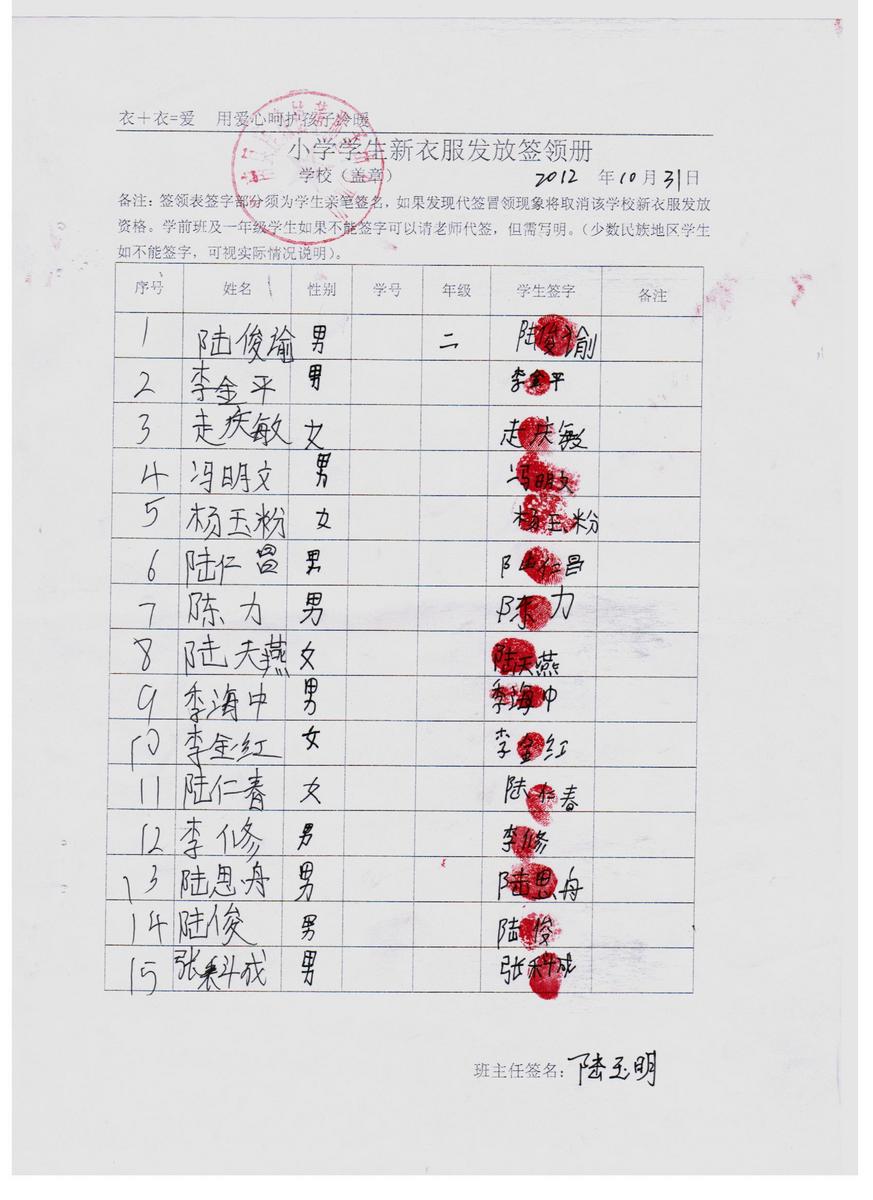 衣+衣=爱 用爱心呵护孩子冷暖
小学学生新衣服发放签领册
学校(盖章) 2012 年 10 月 31 日
备注:签领表签字部分须为学生亲笔签名,如果发现代签冒领现象将取消该学校新衣服发放
资格。学前班及一年级学生如果不能签字可以请老师代签,但需写明。(少数民族地区学生
如不能签字,可视实际情况说明)。
序号 姓名 性别 学号 年级 学生签字 备注
1 陆俊瑜 男 二 陆俊瑜
2 李金平 男 李金平
3 走庆敏 女 走庆敏
4 冯明文 男 冯明文
5 杨玉粉 女 杨玉粉
6 陆仁昌 男 陆仁昌
7 陈力 男 陈力
8 陆天燕 女 陆天燕
9 李海中 男 李海中
10 李金红 女 李金红
11 陆仁春 女 陆仁春
12 李修 男 李修
13 陆思舟 男 陆思舟
14 陆俊 男 陆俊
15 张科成 男 张科成
班主任签名: 陆玉明